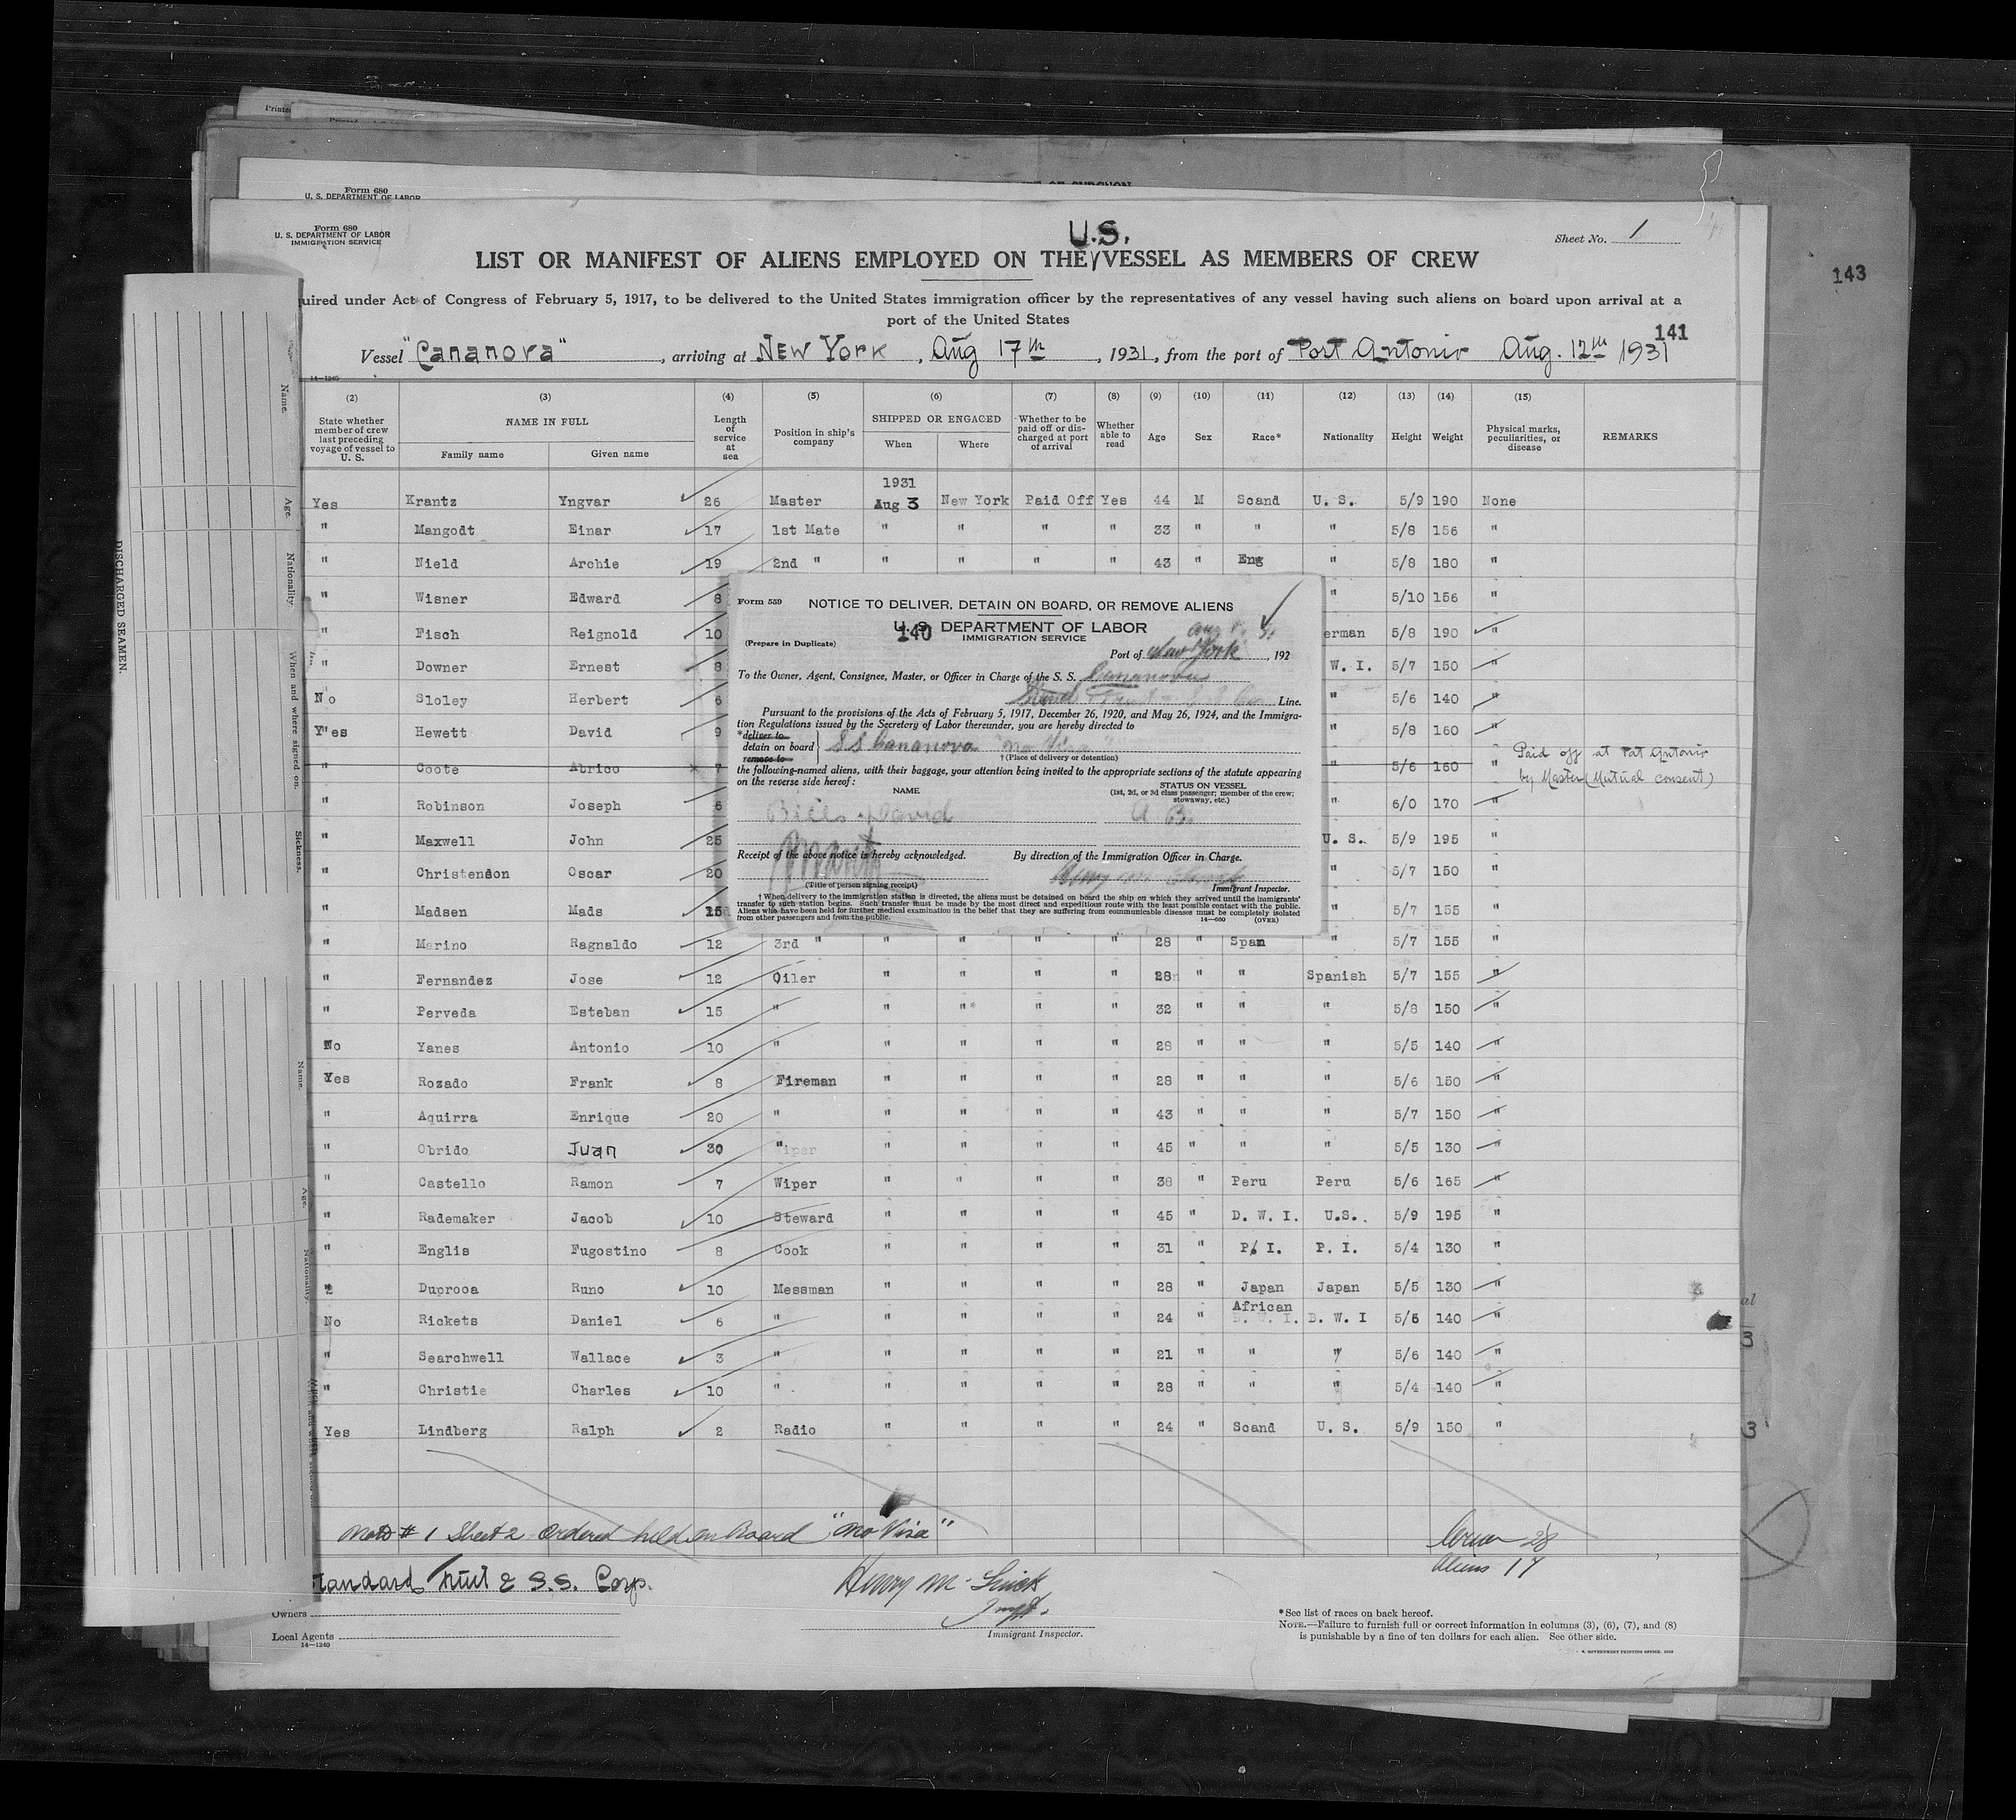 Form 680
U. S. DEPARTMENT OF LABOR
Form 680
U. S. DEPARTMENT OF LABOR
IMMIGRATION SERVICE
U.S.
Sheet No. 1
LIST OR MANIFEST OF ALIENS EMPLOYED ON THE VESSEL AS MEMBERS OF CREW
143
uired under Act of Congress of February 5, 1917, to be delivered to the United States immigration officer by the representatives of any vessel having such aliens on board upon arrival at a
port of the United States
141
Vessel "Cananova", arriving at New York, Aug 17th, 1931, from the port of Port Antonio Aug. 12th 1931
14—1240
(2) (3) (4) (5) (6) (7) (8) (9) (10) (11) (12) (13) (14) (15)
State whether member of crew last preceding voyage of vessel to U. S.
NAME IN FULL
Family name Given name
Length of service at sea
Position in ship's company
SHIPPED OR ENGAGED
When Where
Whether to be paid off or discharged at port of arrival
Whether able to read
Age Sex Race* Nationality Height Weight
Physical marks, peculiarities, or disease
REMARKS
1931
Yes Krantz Yngvar 26 Master Aug 3 New York Paid Off Yes 44 M Scand U. S. 5/9 190 None
" Mangodt Einar 17 1st Mate " " " " 33 " " " 5/8 156 "
" Nield Archie 19 2nd " " " " " 43 " Eng " 5/8 180 "
" Wisner Edward 8 " 5/10 156 "
" Fisch Reignold 10 erman 5/8 190 "
" Downer Ernest 8 W. I. 5/7 150 "
No Sloley Herbert 6 " 5/6 140 "
Yes Hewett David 9 " 5/8 160 "
" Coote Atrico 7 " 5/6 160 " Paid off at Port Antonio
by Master (Mutual consent)
" Robinson Joseph 6 " 6/0 170 "
" Maxwell John 25 U. S. 5/9 195 "
" Christendon Oscar 20 " 5/7 150 "
" Madsen Mads 15 " 5/7 155 "
" Marino Ragnaldo 12 3rd " " " " " 28 " Span " 5/7 155 "
" Fernandez Jose 12 Oiler " " " " 28 " " Spanish 5/7 155 "
" Perveda Esteban 15 " " " " " 32 " " " 5/8 150 "
No Yanes Antonio 10 " " " " " 28 " " " 5/5 140 "
Yes Rozado Frank 8 Fireman " " " " 28 " " " 5/6 150 "
" Aquirra Enrique 20 " " " " " 43 " " " 5/7 150 "
" Obrido Juan 30 " " " " " 45 " " " 5/5 130 "
" Castello Ramon 7 Wiper " " " " 38 " Peru Peru 5/6 165 "
" Rademaker Jacob 10 Steward " " " " 45 " D. W. I. U.S. 5/9 195 "
" Englis Fugostino 8 Cook " " " " 31 " P. I. P. I. 5/4 130 "
" Duprooa Runo 10 Messman " " " " 28 " Japan Japan 5/5 130 "
No Rickets Daniel 6 " " " " " 24 " African B. W. I 5/6 140 "
" Searchwell Wallace 3 " " " " " 21 " " " 5/6 140 "
" Christie Charles 10 " " " " " 28 " " " 5/4 140 "
Yes Lindberg Ralph 2 Radio " " " " 24 " Scand U. S. 5/9 150 "
Form 559
NOTICE TO DELIVER, DETAIN ON BOARD, OR REMOVE ALIENS
U. S. DEPARTMENT OF LABOR
140
IMMIGRATION SERVICE
(Prepare in Duplicate)
Port of New York, 192
To the Owner, Agent, Consignee, Master, or Officer in Charge of the S. S. Cananova
Line.
Pursuant to the provisions of the Acts of February 5, 1917, December 26, 1920, and May 26, 1924, and the Immigra-
tion Regulations issued by the Secretary of Labor thereunder, you are hereby directed to
*deliver to
detain on board
remove to
S S Cananova "no Visa"
†(Place of delivery or detention)
the following-named aliens, with their baggage, your attention being invited to the appropriate sections of the statute appearing
on the reverse side hereof:
NAME STATUS ON VESSEL
(1st, 2d, or 3d class passenger; member of the crew; stowaway, etc.)
David A B.
Receipt of the above notice is hereby acknowledged. By direction of the Immigration Officer in Charge.
Immigrant Inspector.
(Title of person signing receipt)
†When delivery to the immigration station is directed, the aliens must be detained on board the ship on which they arrived until the immigrants'
transfer to such station begins. Such transfer must be made by the most direct and expeditious route with the least possible contact with the public.
Aliens who have been held for further medical examination in the belief that they are suffering from communicable diseases must be completely isolated
from other passengers and from the public.
14—680 (OVER)
DISCHARGED SEAMEN.
Name. Age. Nationality. When and where signed on. Sickness.
Name. Age. Nationality.
# 1 Sheet 2 Ordered held on Board "no Visa"
28
Aliens 17
tandard Fruit & S.S. Corp.
Henry M.
Owners
Local Agents
14—1240
Immigrant Inspector.
*See list of races on back hereof.
NOTE.—Failure to furnish full or correct information in columns (3), (6), (7), and (8)
is punishable by a fine of ten dollars for each alien. See other side.